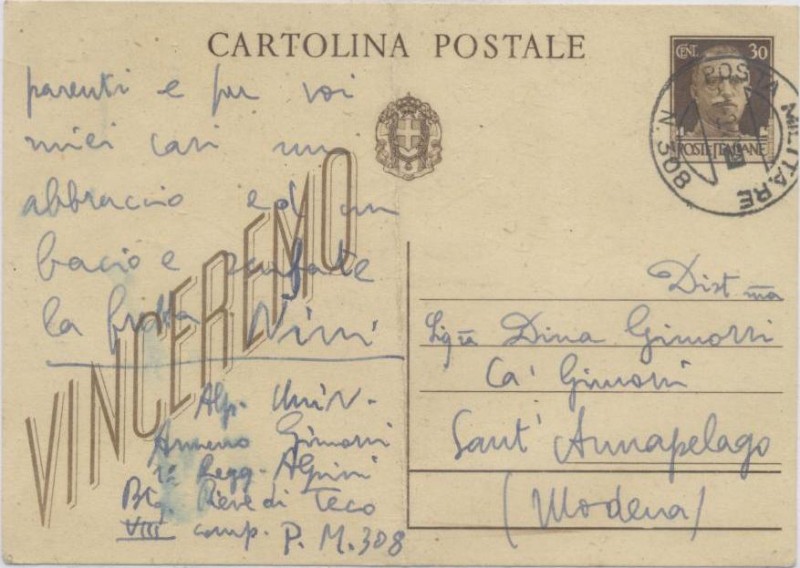 CARTOLINA POSTALE
CENT. 30
POSTE ITALIANE
POSTA MILITARE
N. 308
parenti e per voi
miei cari un
abbraccio ed un
bacio e scusate
la fretta Nini
VINCEREMO
Alp. Univ.
Armeno Gimorri
1º Regg. Alpini
Btg. Pieve di Teco
VIII comp. P. M. 308
Dist ma
Sig ra Dina Gimorri
Ca' Gimorri
Sant' Annapelago
(Modena)